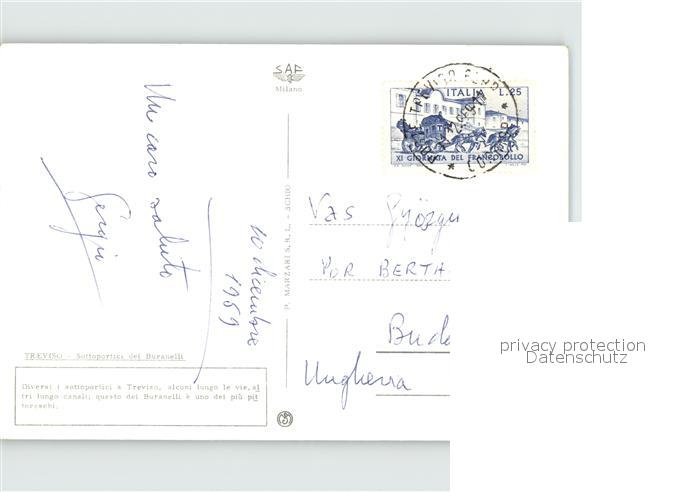 SAF
Milano
Un caro saluto
Sergio
10 dicembre
1969
P. MARZARI S.R.L. - SCHIO
ITALIA L.25
XI GIORNATA DEL FRANCOBOLLO
Vas
POR BERTA
Bud
Ungheria
TREVISO - Sottoportici dei Buranelli
Diversi i sottoportici a Treviso, alcuni lungo le vie, al
tri lungo canali; questo dei Buranelli è uno dei più pit
toreschi.
privacy protection
Datenschutz